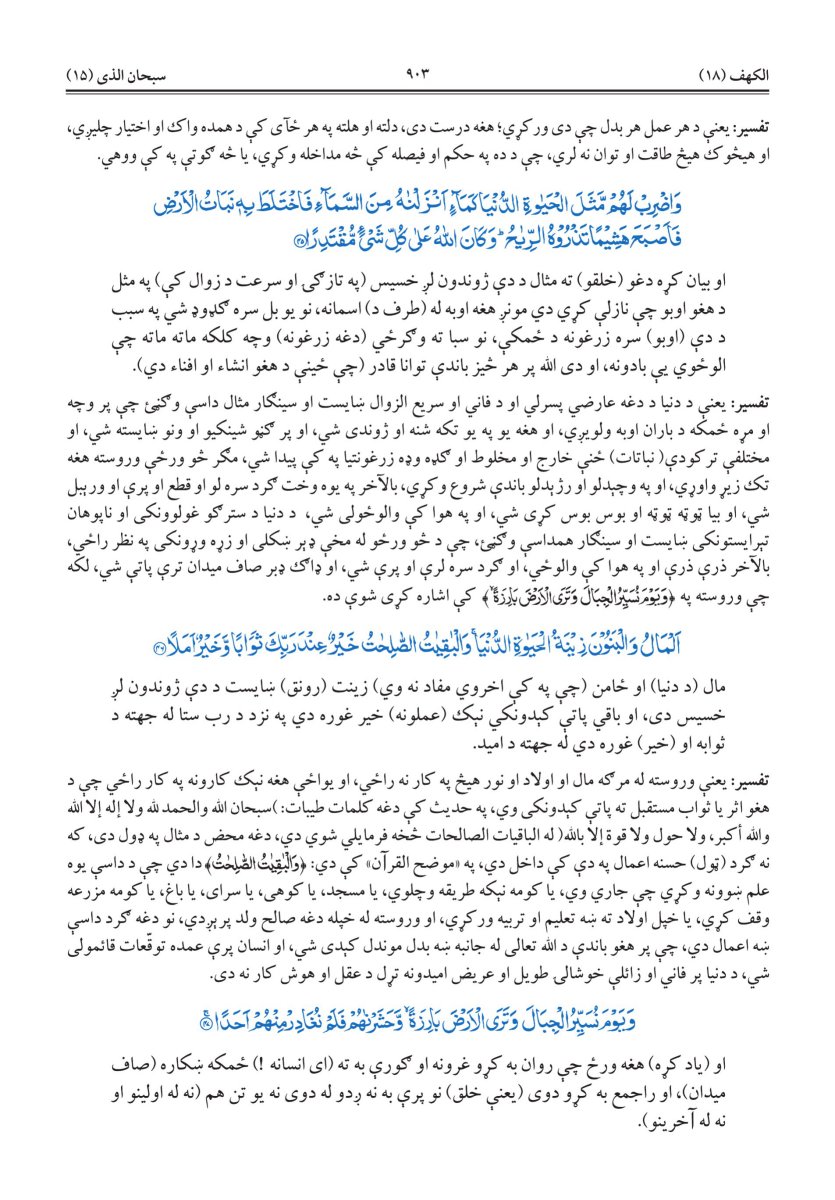 الكهف (۱۸)
۹۰۳
سبحان الذی (۱۵)
تفسير: يعنې د هر عمل هر بدل چې دی ورکړي؛ هغه درست دی، دلته او هلته په هر ځآی کې د همده واك او اختيار چليږي،
او هيڅوك هيڅ طاقت او توان نه لري، چې د ده په حكم او فيصله کې څه مداخله وکړي، يا څه ګوتې په کې ووهي.
وَاضْرِبْ لَهُمْ مَّثَلَ الْحَيٰوةِ الدُّنْيَا كَمَآءٍ اَنْزَلْنٰهُ مِنَ السَّمَآءِ فَاخْتَلَطَ بِهٖ نَبَاتُ الْاَرْضِ
فَاَصْبَحَ هَشِيْمًا تَذْرُوْهُ الرِّيٰحُ ۗ وَكَانَ اللّٰهُ عَلٰى كُلِّ شَيْءٍ مُّقْتَدِرًا ﴿۴۵﴾
او بيان کړه دغو (خلقو) ته مثال د دې ژوندون لږ خسيس (په تازګۍ او سرعت د زوال کې) په مثل
د هغو اوبو چې نازلې کړي دي مونږ هغه اوبه له (طرف د) اسمانه، نو يو بل سره ګډوډ شي په سبب
د دې (اوبو) سره زرغونه د ځمکې، نو سبا ته وګرځي (دغه زرغونه) وچه کلکه ماته ماته چې
الوځوي يې بادونه، او دی الله پر هر څيز باندې توانا قادر (چې ځينې د هغو انشاء او افناء دي).
تفسير: يعنې د دنيا د دغه عارضي پسرلي او د فاني او سريع الزوال ښايست او سينګار مثال داسې وګڼئ چې پر وچه
او مړه ځمکه د باران اوبه ولويږي، او هغه يو په يو تکه شنه او ژوندی شي، او پر ګڼو شينکيو او ونو ښايسته شي، او
مختلفې ترکودې( نباتات) ځنې خارج او مخلوط او ګډه وډه زرغونتيا په کې پيدا شي، مګر څو ورځې وروسته هغه
تک زيړ واوړي، او په وچېدلو او رژېدلو باندې شروع وکړي، بالآخر په يوه وخت ګرد سره لو او قطع او پرې او ورېبل
شي، او بيا ټوټه ټوټه او بوس بوس کړی شي، او په هوا کې والوځولی شي، د دنيا د سترګو غولوونکی او ناپوهان
تېرايستونکی ښايست او سينګار همداسې وګڼئ، چې د څو ورځو له مخې ډېر ښکلی او زړه وړونکی په نظر راځي،
بالآخر ذرې ذرې او په هوا کې والوځي، او ګرد سره لرې او پرې شي، او ډاګ ډبر صاف ميدان ترې پاتې شي، لکه
چې وروسته په ﴿وَيَوْمَ نُسَيِّرُ الْجِبَالَ وَتَرَى الْاَرْضَ بَارِزَةً ۙ﴾ کې اشاره کړی شوې ده.
اَلْمَالُ وَالْبَنُوْنَ زِيْنَةُ الْحَيٰوةِ الدُّنْيَا ۚ وَالْبٰقِيٰتُ الصّٰلِحٰتُ خَيْرٌ عِنْدَ رَبِّكَ ثَوَابًا وَّخَيْرٌ اَمَلًا ﴿۴۶﴾
مال (د دنيا) او ځامن (چې په کې اخروي مفاد نه وي) زينت (رونق) ښايست د دې ژوندون لږ
خسيس دی، او باقي پاتې کېدونکي نېک (عملونه) خير غوره دي په نزد د رب ستا له جهته د
ثوابه او (خير) غوره دي له جهته د اميد.
تفسير: يعنې وروسته له مرګه مال او اولاد او نور هيڅ په کار نه راځي، او يواځې هغه نېک کارونه په کار راځي چې د
هغو اثر يا ثواب مستقبل ته پاتې کېدونکی وي، په حديث کې دغه کلمات طيبات: )سبحان الله والحمد لله ولا إله إلا الله
والله أكبر، ولا حول ولا قوة إلا بالله( له الباقيات الصالحات څخه فرمايلي شوي دي، دغه محض د مثال په ډول دي، که
نه ګرد (ټول) حسنه اعمال په دې کې داخل دي، په «موضح القرآن» کې دي: ﴿وَالْبٰقِيٰتُ الصّٰلِحٰتُ﴾دا دي چې د داسې يوه
علم ښوونه وکړي چې جاري وي، يا کومه نېکه طريقه وچلوي، يا مسجد، يا کوهی، يا سرای، يا باغ، يا کومه مزرعه
وقف کړي، يا خپل اولاد ته ښه تعليم او تربيه ورکړي، او وروسته له خپله دغه صالح ولد پرېږدي، نو دغه ګرد داسې
ښه اعمال دي، چې پر هغو باندې د الله تعالی له جانبه ښه بدل موندل کېدی شي، او انسان پرې عمده توقّعات قائمولی
شي، د دنيا پر فاني او زائلې خوشالۍ طويل او عريض اميدونه تړل د عقل او هوش کار نه دی.
وَيَوْمَ نُسَيِّرُ الْجِبَالَ وَتَرَى الْاَرْضَ بَارِزَةً ۙ وَّحَشَرْنٰهُمْ فَلَمْ نُغَادِرْ مِنْهُمْ اَحَدًا ﴿۴۷﴾
او (ياد کړه) هغه ورځ چې روان به کړو غرونه او ګورې به ته (ای انسانه !) ځمکه ښکاره (صاف
ميدان)، او راجمع به کړو دوی (يعنې خلق) نو پرې به نه ږدو له دوی نه يو تن هم (نه له اولينو او
نه له آخرينو).